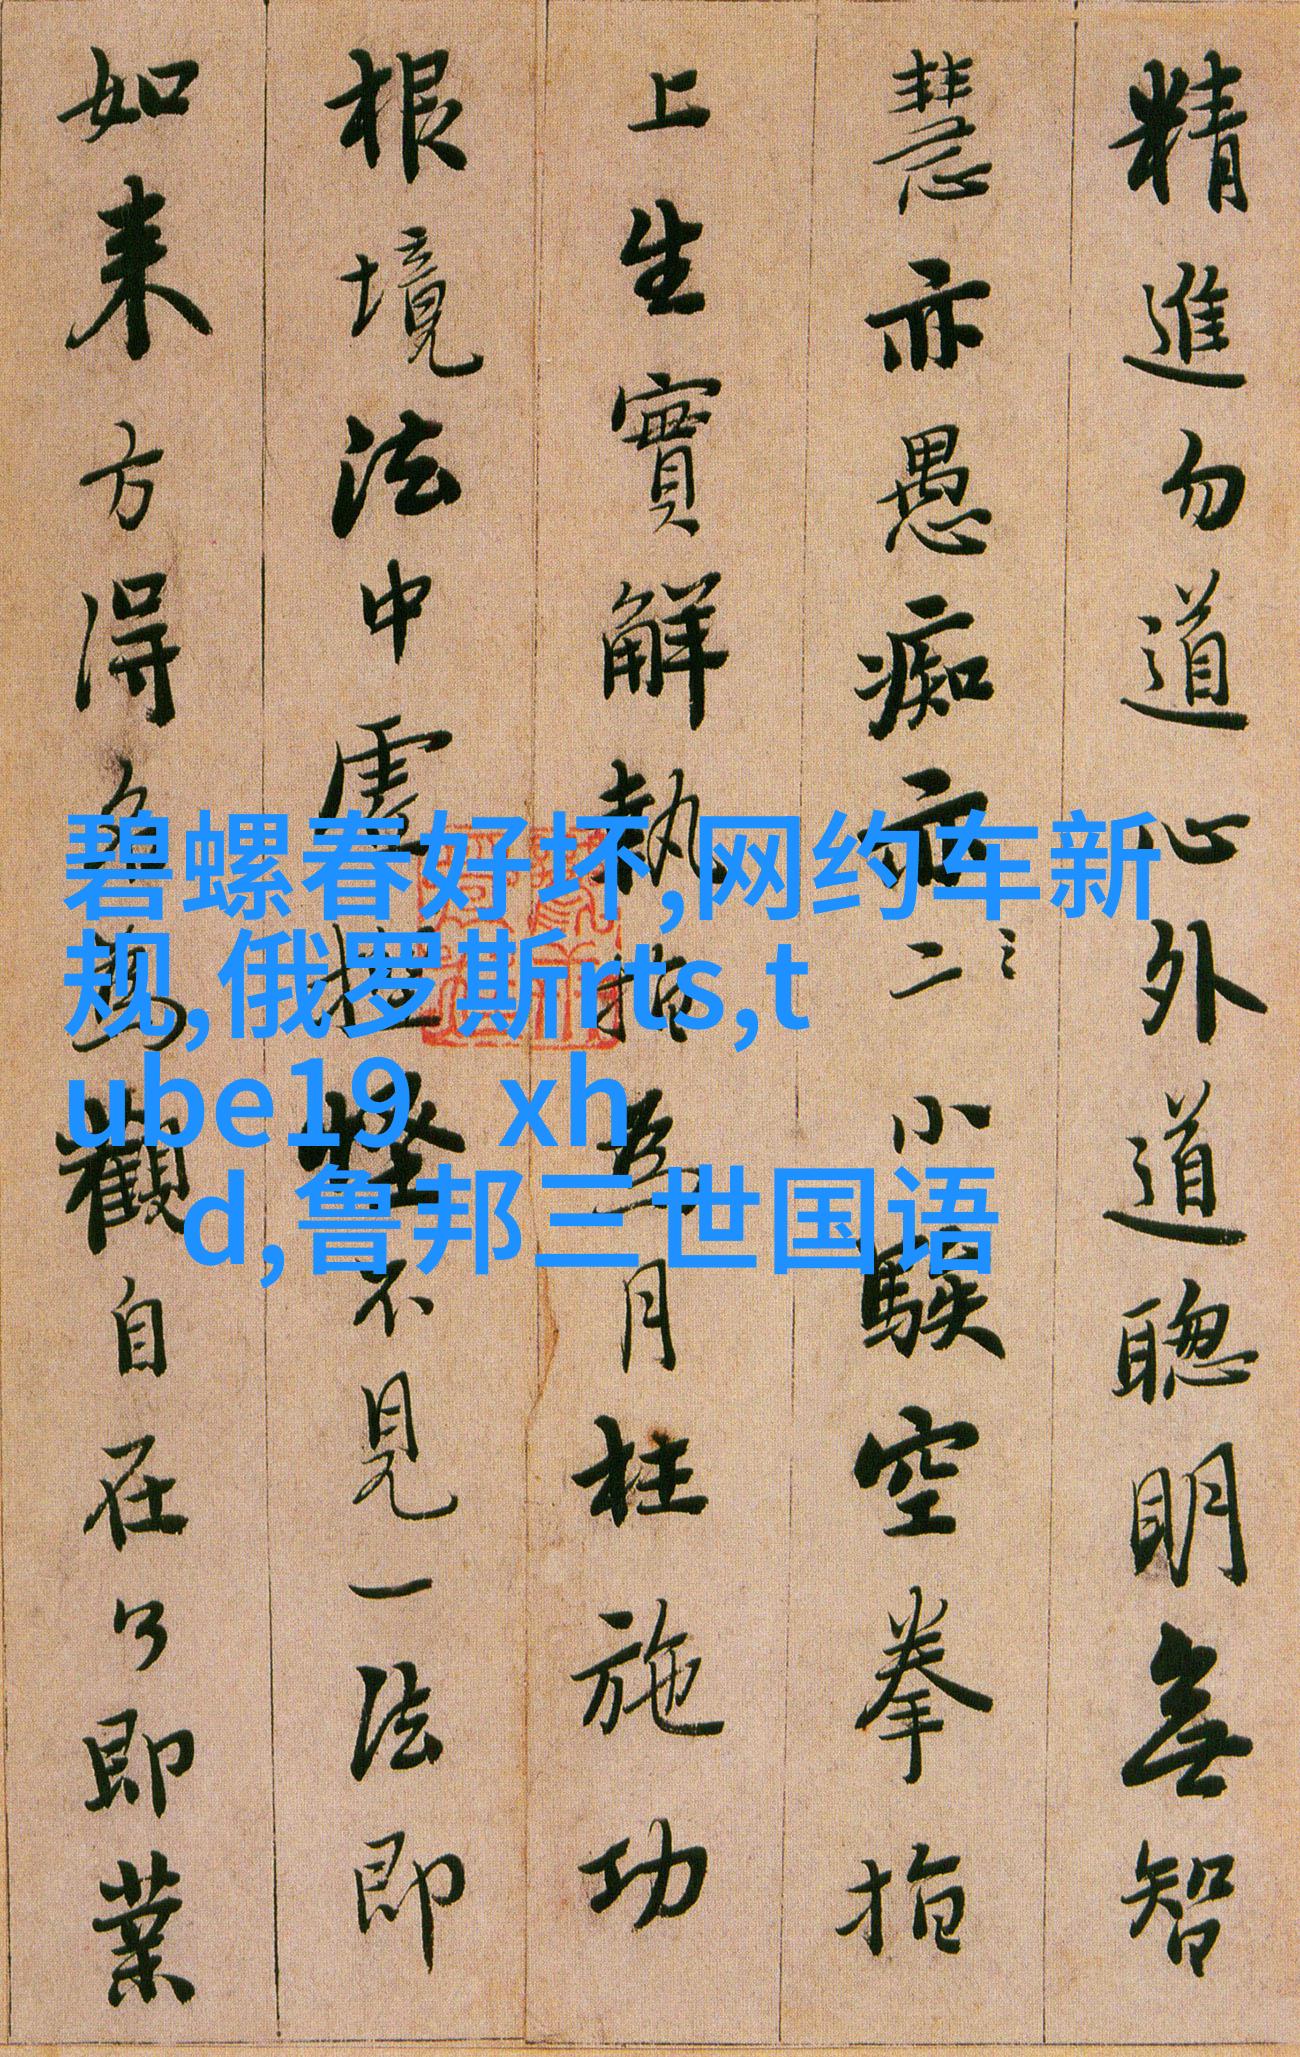 精進勿道心外道聰明無智
慧亦愚癡亦二三小騃空拳指
上生實解執指為月枉施功
根境法中虛揑恠不見一法即
如来方得名為觀自在了即業
碧螺春好坏,网约车新
规,俄罗斯rts,t
ube19 xh
d,鲁邦三世国语